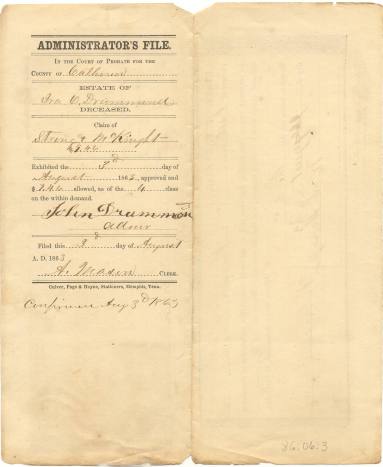 ADMINISTRATOR'S FILE.
IN THE COURT OF PROBATE FOR THE
COUNTY OF Calhoun
ESTATE OF
Ira O. Drummond
DECEASED.
Claim of
Strong & McKnight
$9.46
Exhibited the 3d day of
August 1863, approved and
$9.46 allowed, as of the 4 class
on the within demand.
John Drummond
Admr
Filed this 3d day of August
A. D. 1863
A. Mason CLERK.
Culver, Page & Hoyne, Stationers, Memphis, Tenn.
Aug 3d 1863